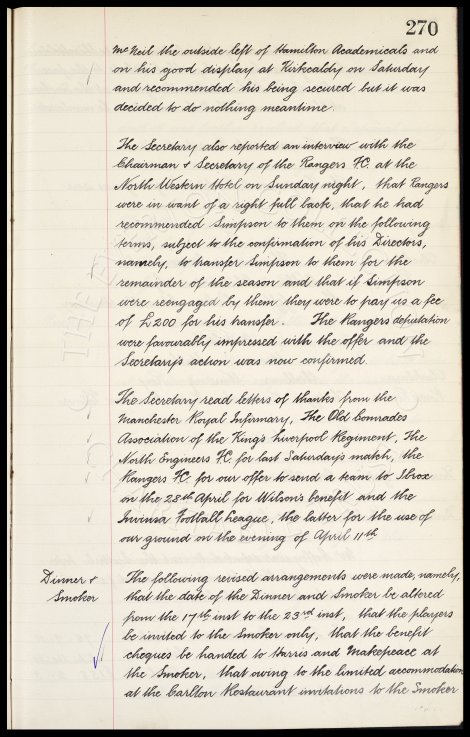 270
McNeil the outside left of Hamilton Academicals and
on his good display at Kirkcaldy on Saturday
and recommended his being secured but it was
decided to do nothing meantime.
The Secretary also reported an interview with the
Chairman + Secretary of the Rangers F.C. at the
North Western Hotel on Sunday night, that Rangers
were in want of a right full back, that he had
recommended Simpson to them on the following
terms, subject to the confirmation of his Directors,
namely, to transfer Simpson to them for the
remainder of the season and that if Simpson
were reengaged by them they were to pay us a fee
of £200 for his transfer. The Rangers deputation
were favourably impressed with the offer and the
Secretary's action was now confirmed.
The Secretary read letters of thanks from the
Manchester Royal Infirmary, The Old Comrades
Association of the King's Liverpool Regiment, The
North Engineers F.C. for last Saturday's match, the
Rangers F.C. for our offer to send a team to Ibrox
on the 28th April for Wilson's benefit and the
Invinsa Football League, the latter for the use of
our ground on the evening of April 11th.
Dinner +
Smoker
The following revised arrangements were made, namely,
that the date of the Dinner and Smoker be altered
from the 17th inst to the 23rd inst, that the players
be invited to the Smoker only, that the benefit
cheques be handed to Harris and Makepeace at
the Smoker, that owing to the limited accommodation
at the Carlton Restaurant invitations to the Smoker